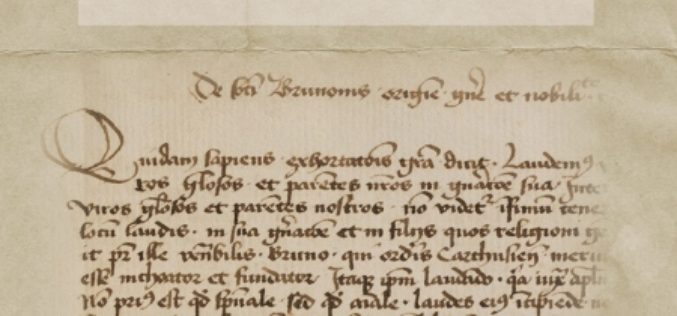 De scti Brunonis origie gne et nobili
Quidam sapiens exhortatois gra dicit Laudemus
ros gl'osos et parentes nros in gnatoe sua Inter
viros gl'osos et parentes nostros no videt' ifimu tene
locu laudis in sua gnatoe et in filijs quos religioni
it pr ille venerbilis Bruno qui ordis Carthusien meru
esse inchoator et fundator Itaqz ipm laudado qa iux apl
No prius est qd spuale sed qd aiale laudes eius icipiede